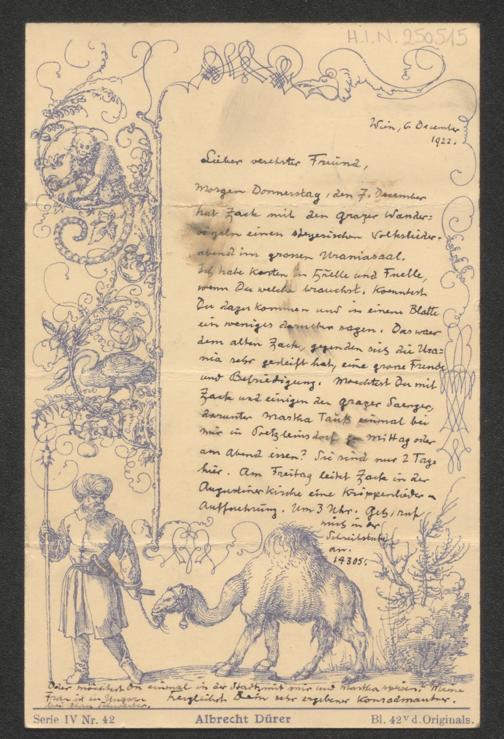 H.I.N. 250515
Wien, 6. Dezember
1922.
Lieber verehrter Freund,
Morgen Donnerstag, den 7. Dezember
hat Zack mit den grazer Wander=
vögeln einen steyerischen Volkslieder-
abend im grossen Uraniasaal.
Ich habe Karten in Huelle und Fuelle,
wenn Du welche brauchst. Koenntest
Du dazu kommen und in einem Blatte
ein weniges darueber sagen. Das waer
dem alten Zack, gegenden sich die Ura=
nia sehr gedeift hat, eine grosse Freude
und Befriedigung. Moechtest Du mit
Zack und einigen der grazer Saenger,
darunter Martha Tauk einmal bei
mir in Poetzleinsdorf zu Mittag oder
am Abend essen? Sie sind nur 2 Tage
hier. Am Freitag leitet Zack in der
Augustinerkirche eine Krippenlieder-
Auffuehrung. Um 3 Uhr. Geh, ruf
mich in der
Schreibstube
an.
14305.
Oder moechtest Du einmal in der Stadt mit mir und Martha speisen? Meine
Frau ist in Ungarn
bei ihrer Schwester.
Herzlichst Dein sehr ergebener Konradmautner.
Serie IV Nr. 42
Albrecht Dürer
Bl. 42v d. Originals.